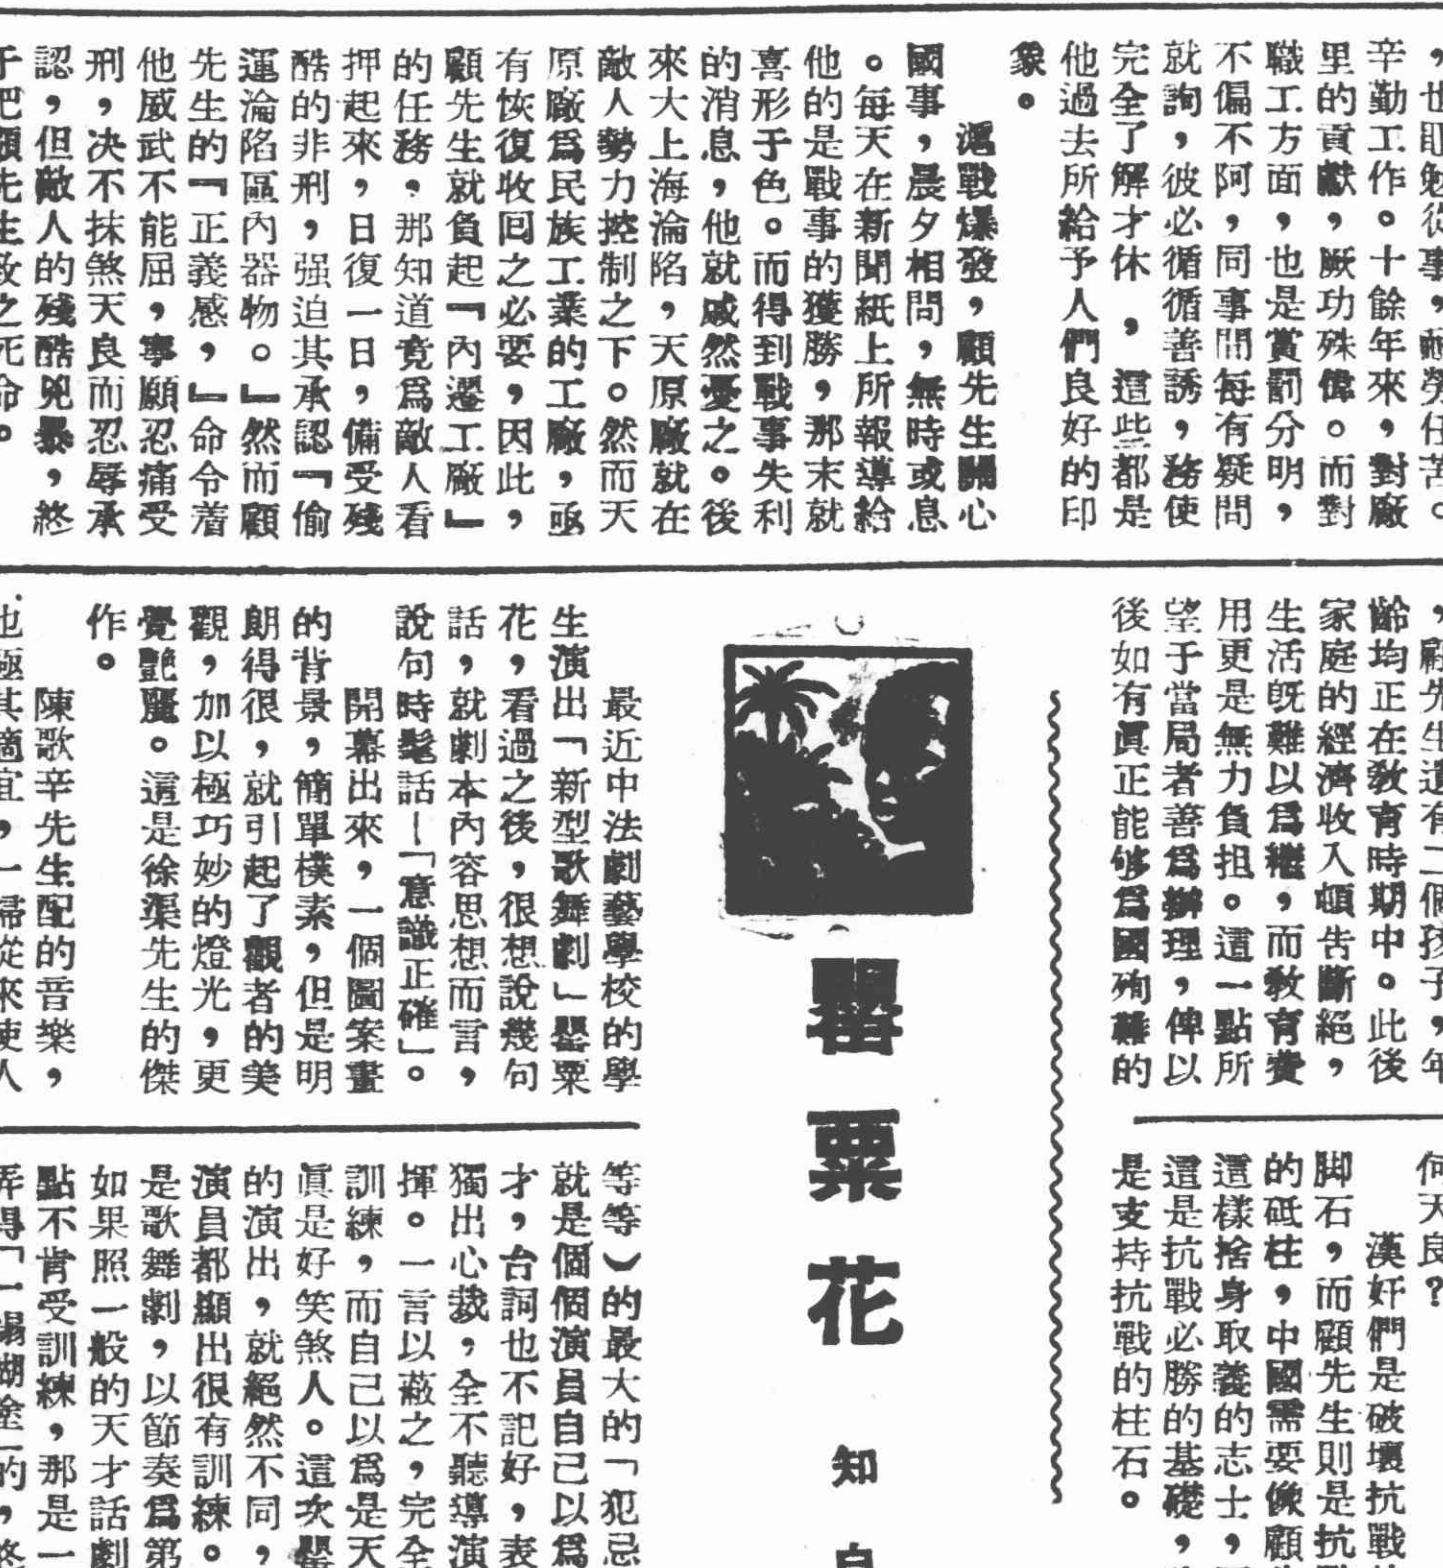 ，也耵勉從事，耐勞任苦。
辛勤工作。十餘年來，對廠
里的貢獻，厥功殊偉。而對
職工方面，也是賞罰分明，
不偏不阿，同事間每有疑問
就詢，彼必循循善誘，務使
完全了解才休，這些都是
他過去所給予人們良好的印
象。
滬戰爆發，顧先生關心
國事，晨夕相問，無時或息
。每天在新聞紙上所報導給
他的是戰事的獲勝，那末就
喜形于色。而得到戰事失利
的消息，他就戚然憂之。後
來大上海淪陷，天原廠就在
敵人勢力控制之下。然而天
原廠爲民族工業的工廠，亟
有恢復收回之必要，因此，
顧先生就負起『內遷工廠』
的任務，那知道竟爲敵人看
押起來，日復一日，備受殘
酷的非刑，强迫其承認『偷
運淪陷區內器物。』然而顧
先生的『正義感，』命令着
他威武不能屈，寧願忍痛受
刑，决不抹煞天良而忍辱承
認，但敵人的殘酷兇暴，終
于把顧先生致之死命。
，顧先生遺有二個孩子，年
齡均正在敎育時期中。此後
家庭的經濟收入頓告斷絕，
生活旣難以爲繼，而敎育費
用更是無力負担。這一點所
望于當局者善爲辦理，俾以
後如有眞正能够爲國殉難的
何天良？
漢奸們是破壞抗戰
脚石，而顧先生則是抗
的砥柱，中國需要像顧
這樣捨身取義的志士，
這是抗戰必勝的基礎，
是支持抗戰的柱石。
罌粟花
知白
最近中法劇藝學校的學
生演出「新型歌舞劇」罌粟
花，看過之後，很想說幾句
話，就劇本內容思想而言，
說句時髦話—「意識正確」。
開幕出來，一個圖案畫
的背景，簡單樸素，但是明
朗得很，就引起了觀者的美
觀，加以極巧妙的燈光，更
覺艷麗。這是徐渠先生的傑
作。
陳歌辛先生配的音樂，
也極其適宜，一掃從來使人
等等）的最大的「犯忌
就是個個演員自己以爲
才，台詞也不記好，表
獨出心裁，全不聽導演
揮。一言以蔽之，完全
訓練，而自己以爲是天
眞是好笑煞人。這次罌
的演出，就絕然不同，
演員都顯出很有訓練。
是歌舞劇，以節奏爲第
如果照一般的天才話劇
點不肯受訓練，那是一
弄得「一塌糊塗」的，